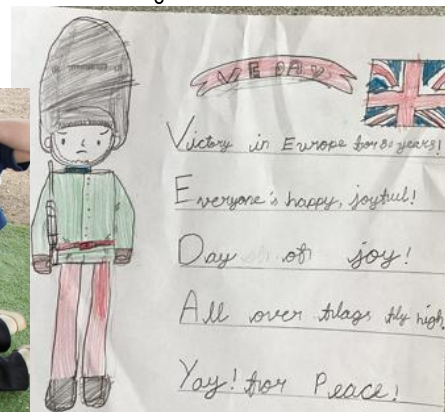 VE DAY
Victory in Europe for 80 years!
Everyone's happy, joyful!
Day of joy!
All over flags fly high
Yay! for Peace!